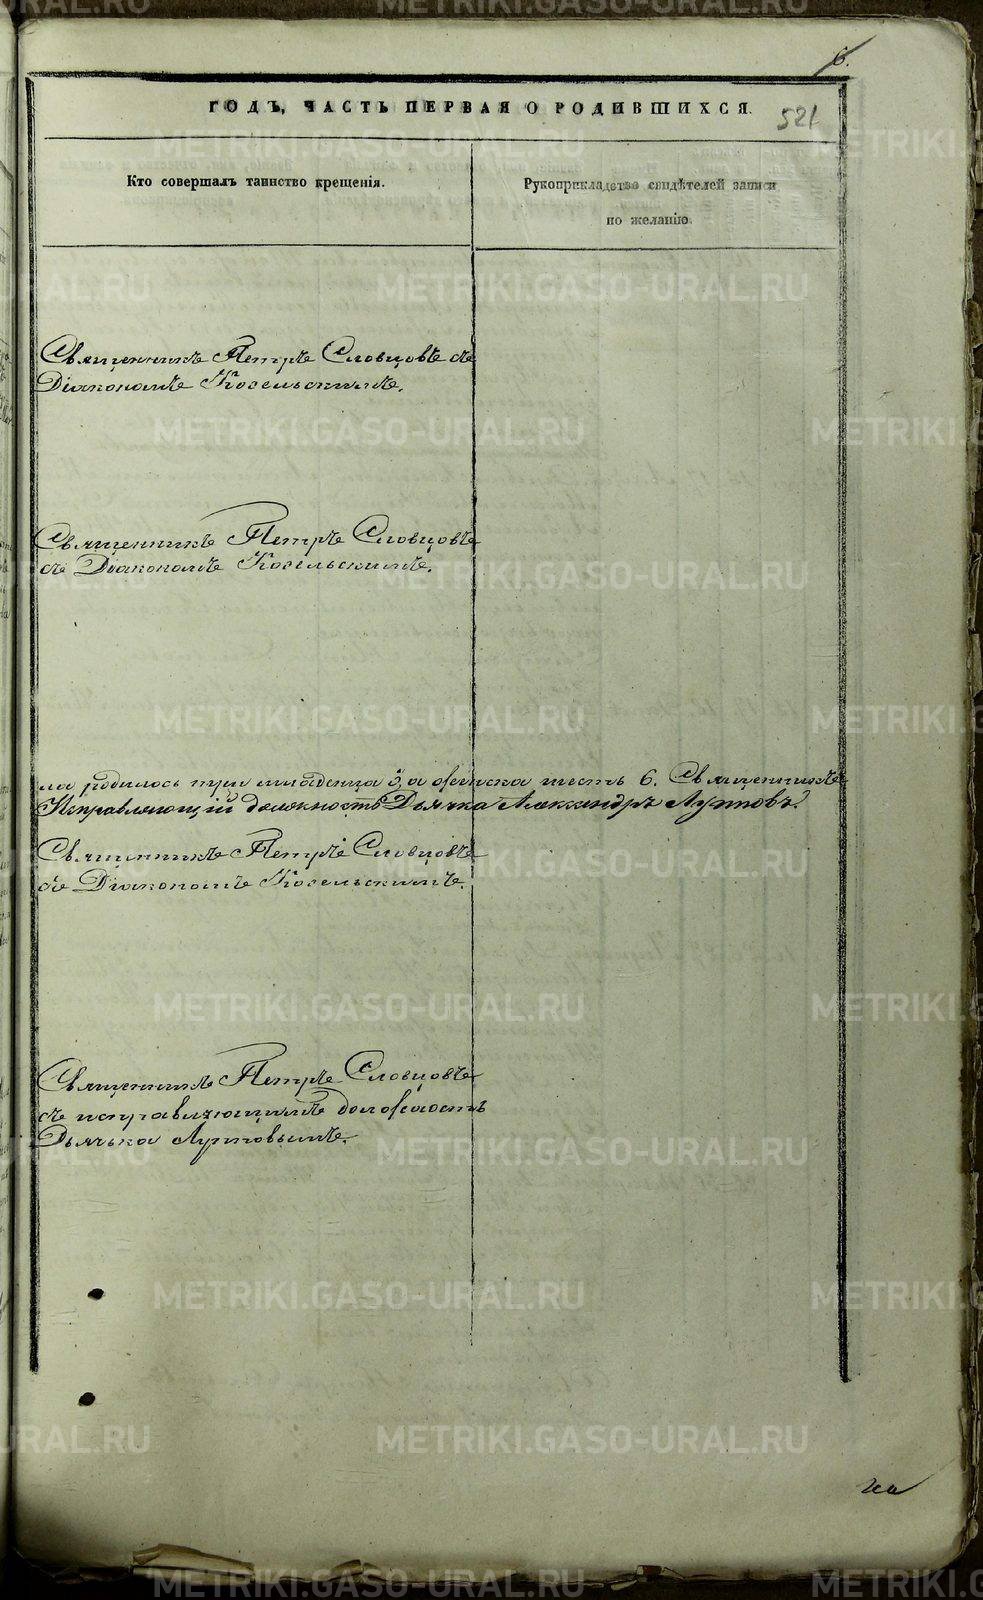 6.
ГОДЪ, ЧАСТЬ ПЕРВАЯ О РОДИВШИХСЯ.
521
Кто совершалъ таинство крещенія.
Рукоприкладство свидѣтелей записи
по желанію.
Священникъ Петръ Словцовъ съ
Діакономъ Косельскимъ.
Священникъ Петръ Словцовъ
съ Діакономъ Косельскимъ.
ла родилось три младенца 3, а женска шесть 6. Священникъ
Исправляющій должность Дьячка Александръ Лупповъ.
Священникъ Петръ Словцовъ
съ Діакономъ Косельскимъ.
Священникъ Петръ Словцовъ
съ исправляющимъ должность
Дьячька Лупповымъ.
METRIKI.GASO-URAL.RU